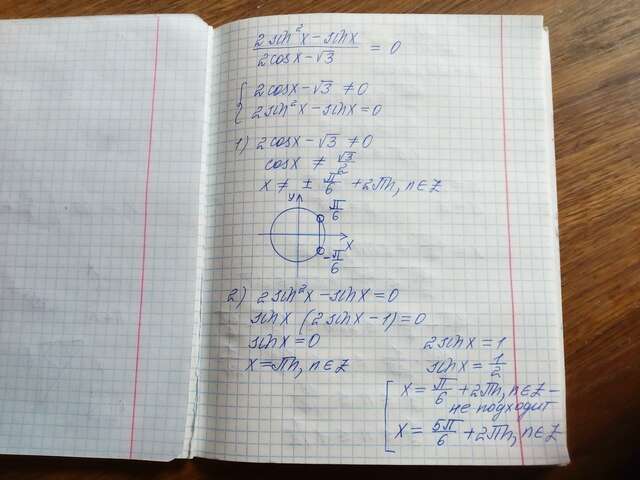 (2sin²x - sinx)/(2cosx - √3) = 0
{ 2cosx - √3 ≠ 0
{ 2sin²x - sinx = 0
1) 2cosx - √3 ≠ 0
cosx ≠ √3/2
x ≠ ± π/6 + 2πn, n∈Z
y
π/6
x
-π/6
2) 2sin²x - sinx = 0
sinx (2sinx - 1) = 0
sinx = 0
x = πn, n∈Z
2sinx = 1
sinx = 1/2
[ x = π/6 + 2πn, n∈Z -
не подходит
[ x = 5π/6 + 2πn, n∈Z